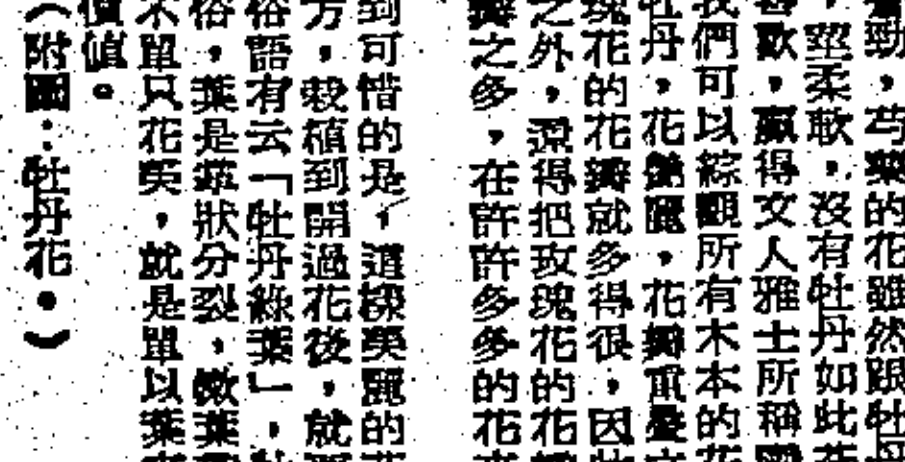 勁，芍藥的花雖然跟牡丹
，莖柔軟，沒有牡丹如此
喜歡，贏得文人雅士所稱
我們可以綜觀所有木本的花
牡丹，花艷麗，花瓣重疊
瑰花的花瓣就多得很，因
之外，還得把玫瑰花的花瓣
瓣之多，在許許多多的花
到可惜的是，這樣美麗的花
方，栽植到開過花後，就
俗語有云「牡丹綠葉」，
俗，葉是羽狀分裂，嫩葉
不單只花美，就是單以葉
價值。
（附圖：牡丹花。）